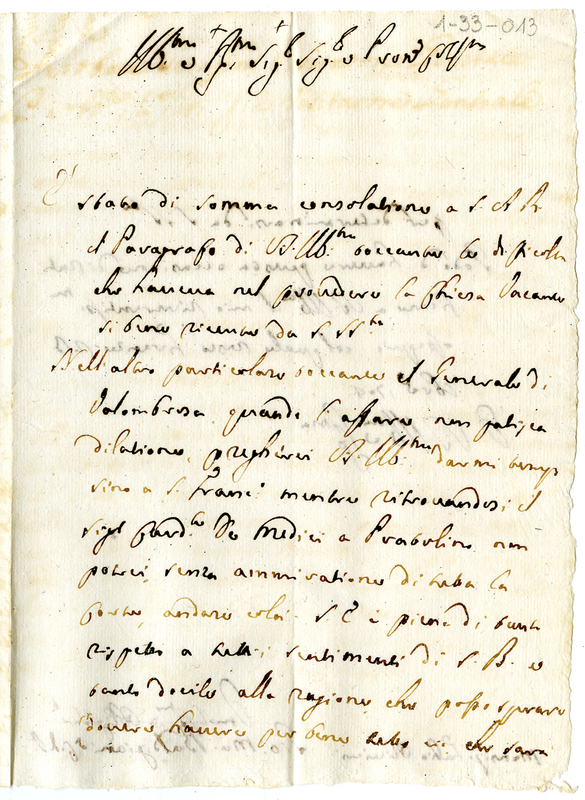 1-33-013
Ill.mo e Sig. Sig. e Pron
È stato di somma consolatione a S. A. R.
il Paragrafo di V. Ill.ma toccante le
che haveva nel provedere la Chiesa Vacante
si bene ricevuto da S. S.tà
Nell'altro particolare toccante il Generale di
Valombrosa quando l'affare non patisca
dilatione, pregherei V. Ill.ma darmi temp
sino a S. Franc.o mentre ritrovandosi il
Sig.r Card.le De Medici a Pratolino non
potrei, senza ammiratione di tutta la
Corte, andare colà. S. E. è piena di tanto
rispetto a tutti i sentimenti di S. B. e
tanto docile alla ragione, che posso sperare
dovere havere per bene tutto ciò che sarà